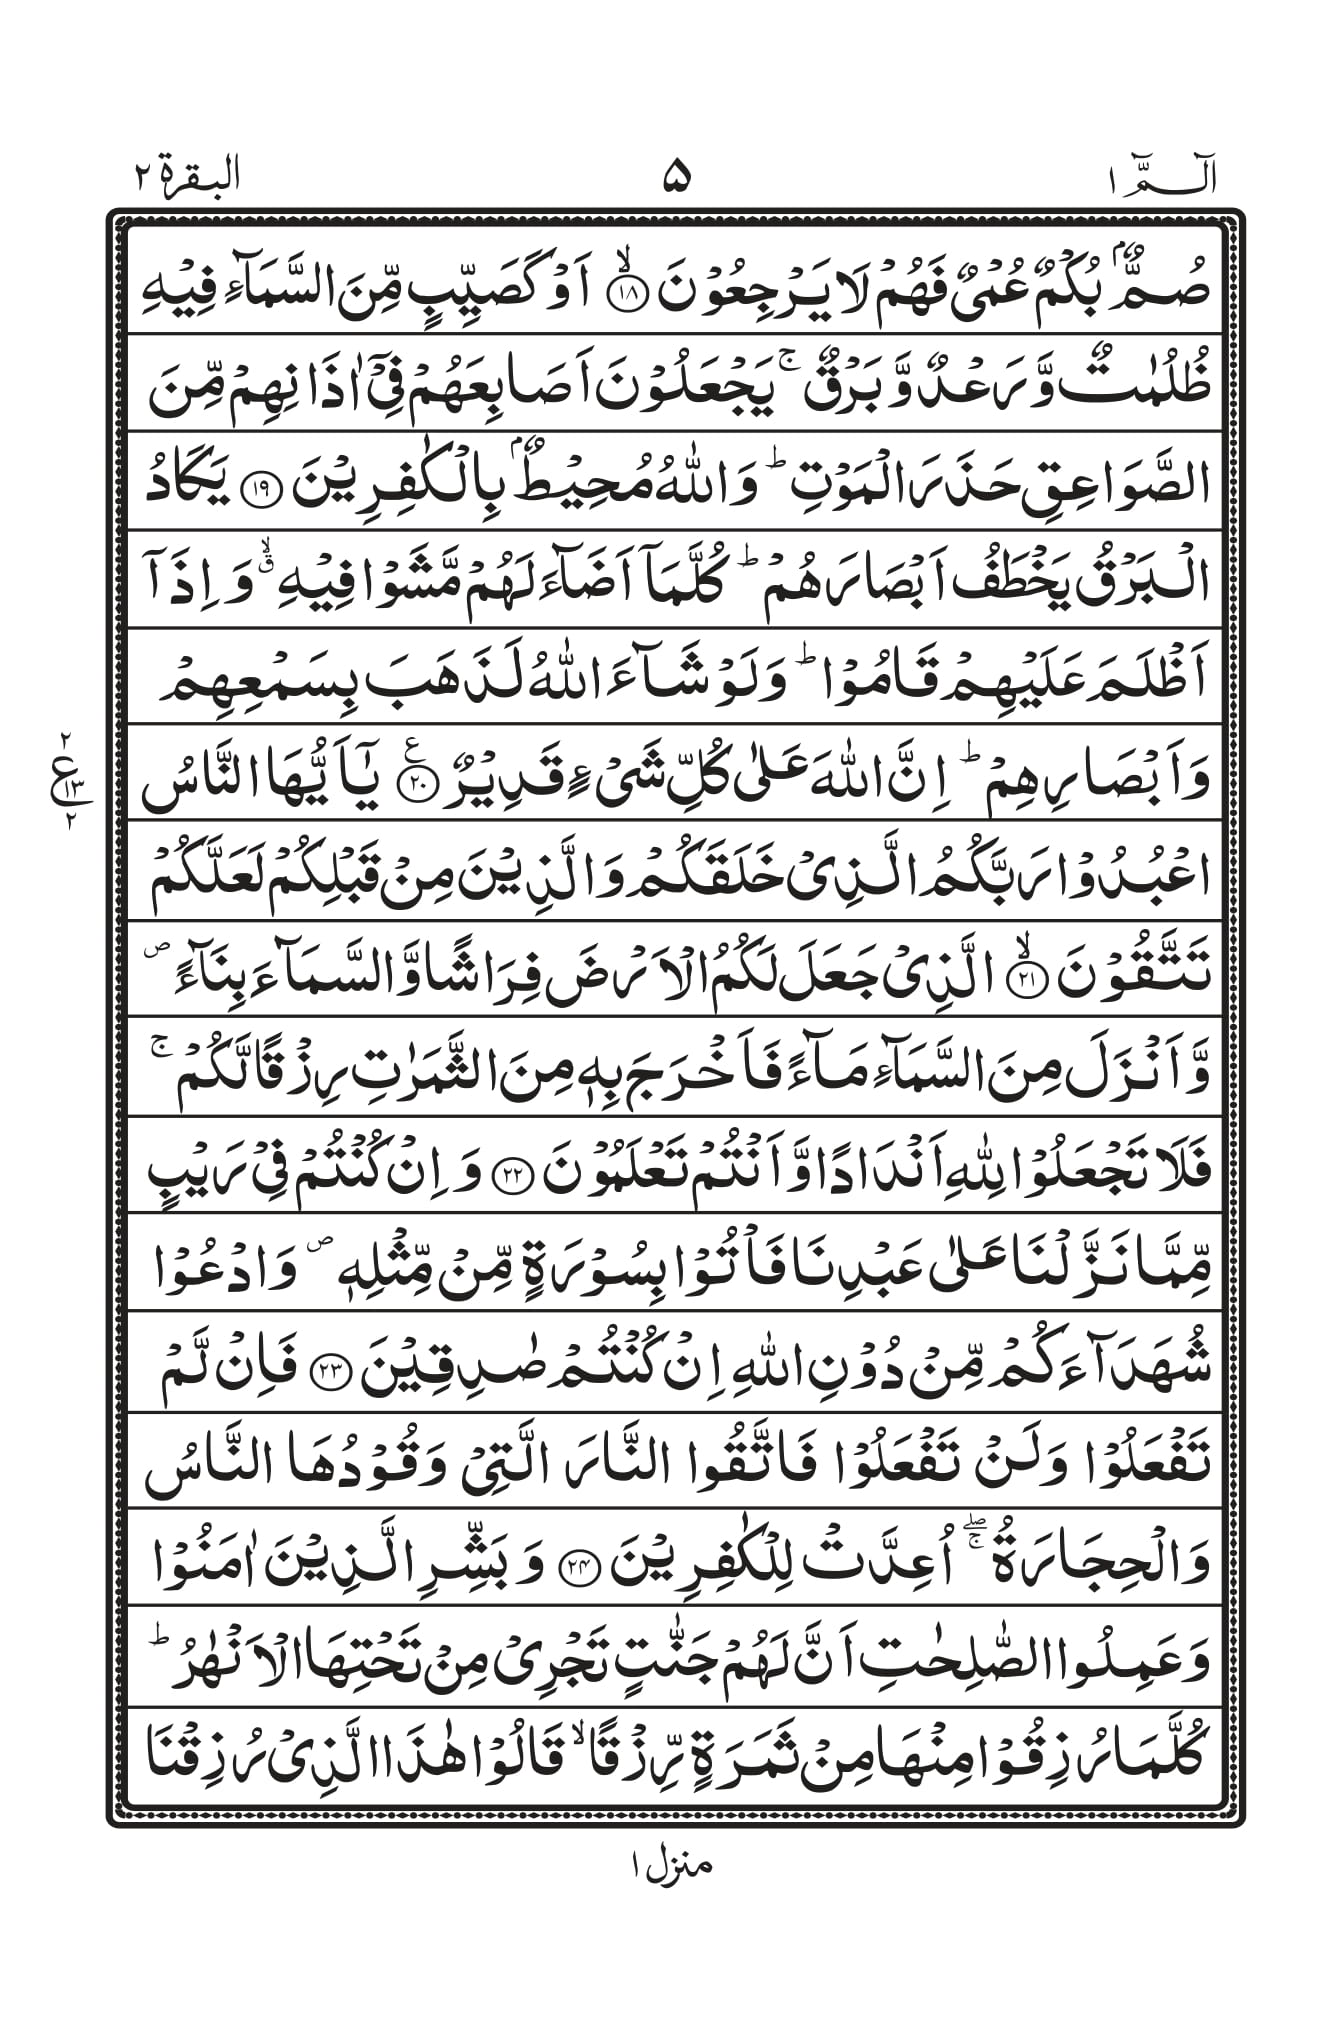 الٓـمّٓ ۱
۵
البقرة ۲
صُمٌّۢ بُكْمٌ عُمْیٌ فَهُمْ لَا یَرْجِعُوْنَ ۙ﴿۱۸﴾ اَوْ كَصَیِّبٍ مِّنَ السَّمَآءِ فِیْهِ
ظُلُمٰتٌ وَّرَعْدٌ وَّبَرْقٌ ۚ یَجْعَلُوْنَ اَصَابِعَهُمْ فِیْۤ اٰذَانِهِمْ مِّنَ
الصَّوَاعِقِ حَذَرَ الْمَوْتِ ؕ وَاللّٰهُ مُحِیْطٌۢ بِالْكٰفِرِیْنَ ﴿۱۹﴾ یَكَادُ
الْبَرْقُ یَخْطَفُ اَبْصَارَهُمْ ؕ كُلَّمَاۤ اَضَآءَ لَهُمْ مَّشَوْا فِیْهِ ۙۗ وَاِذَاۤ
اَظْلَمَ عَلَیْهِمْ قَامُوْا ؕ وَلَوْ شَآءَ اللّٰهُ لَذَهَبَ بِسَمْعِهِمْ
وَاَبْصَارِهِمْ ؕ اِنَّ اللّٰهَ عَلٰی كُلِّ شَیْءٍ قَدِیْرٌ ﴿۲۰﴾ع یٰۤاَیُّهَا النَّاسُ
۲
ع
۱۳
۲
اعْبُدُوْا رَبَّكُمُ الَّذِیْ خَلَقَكُمْ وَالَّذِیْنَ مِنْ قَبْلِكُمْ لَعَلَّكُمْ
تَتَّقُوْنَ ۙ﴿۲۱﴾ الَّذِیْ جَعَلَ لَكُمُ الْاَرْضَ فِرَاشًا وَّالسَّمَآءَ بِنَآءً ۪
وَّاَنْزَلَ مِنَ السَّمَآءِ مَآءً فَاَخْرَجَ بِهٖ مِنَ الثَّمَرٰتِ رِزْقًا لَّكُمْ ۚ
فَلَا تَجْعَلُوْا لِلّٰهِ اَنْدَادًا وَّاَنْتُمْ تَعْلَمُوْنَ ﴿۲۲﴾ وَاِنْ كُنْتُمْ فِیْ رَیْبٍ
مِّمَّا نَزَّلْنَا عَلٰی عَبْدِنَا فَاْتُوْا بِسُوْرَةٍ مِّنْ مِّثْلِهٖ ۪ وَادْعُوْا
شُهَدَآءَكُمْ مِّنْ دُوْنِ اللّٰهِ اِنْ كُنْتُمْ صٰدِقِیْنَ ﴿۲۳﴾ فَاِنْ لَّمْ
تَفْعَلُوْا وَلَنْ تَفْعَلُوْا فَاتَّقُوا النَّارَ الَّتِیْ وَقُوْدُهَا النَّاسُ
وَالْحِجَارَةُ ۖۚ اُعِدَّتْ لِلْكٰفِرِیْنَ ﴿۲۴﴾ وَبَشِّرِ الَّذِیْنَ اٰمَنُوْا
وَعَمِلُوا الصّٰلِحٰتِ اَنَّ لَهُمْ جَنّٰتٍ تَجْرِیْ مِنْ تَحْتِهَا الْاَنْهٰرُ ؕ
كُلَّمَا رُزِقُوْا مِنْهَا مِنْ ثَمَرَةٍ رِّزْقًا ۙ قَالُوْا هٰذَا الَّذِیْ رُزِقْنَا
منزل ۱